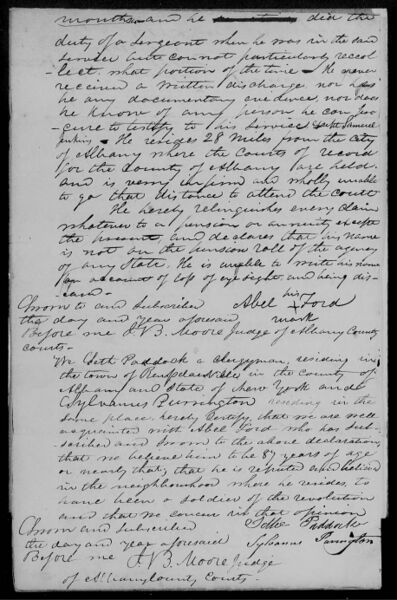 months and he did the
duty of a sergeant when he was in the said
service but cannot particularly recol-
lect, what portion of the time - He never
received a written discharge, nor has
he any documentary evidence, nor does
he know of any person he can pro-
cure to testify to his service Samuel
Jenkins - He resides 28 miles from the city
of Albany where the Courts of record
for the County of Albany are held
and is very infirm and wholly unable
to go that distance to attend the court
He hereby relinquishes every claim
whatever to a pension or annuity except
the present, and declares that his name
is not on the pension roll of the agency
of any State. He is unable to write his name
on account of loss of eye sight, and being dis-
Sworn to and subscribed Abel his Ford
the day and year aforesaid mark
Before me J B. Moore Judge of Albany County
courts -
We Seth Paddock a clergyman, residing in
the town of Rensselaerville in the County of
Albany and State of New York and
Sylvanus Purrington residing in the
same place, hereby certify, that we are well
acquainted with Abel Ford who has sub-
scribed and sworn to the above declaration,
that we believe him to be 87 years of age
or nearly that; that he is reputed and believed
in the neighbourhood where he resides, to
have been a soldier of the revolution
and that we concur in that opinion
Sworn and subscribed Seth Paddock
the day and year aforesaid Sylvanus Purrington
Before me J B. Moore Judge
of Albany County Courts -